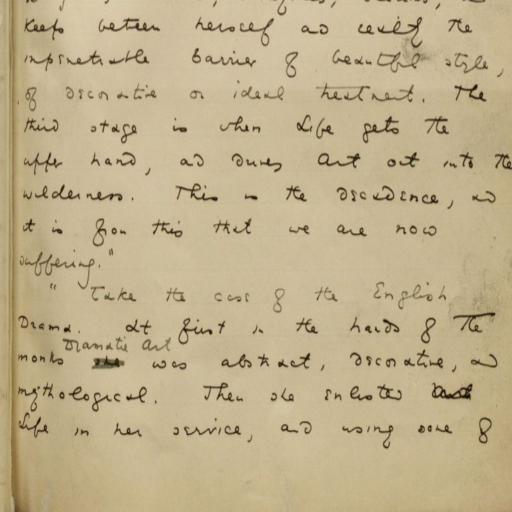 keeps between herself and reality the
impenetrable barrier of beautiful style,
of decorative or ideal treatment. The
third stage is when Life gets the
upper hand, and drives Art out into the
wilderness. This is the decadence, and
it is from this that we are now
suffering."
"Take the case of the English
Drama. At first in the hands of The
monks Dramatic Art was abstract, decorative, and
mythological. Then she enlisted
Life in her service, and using some of